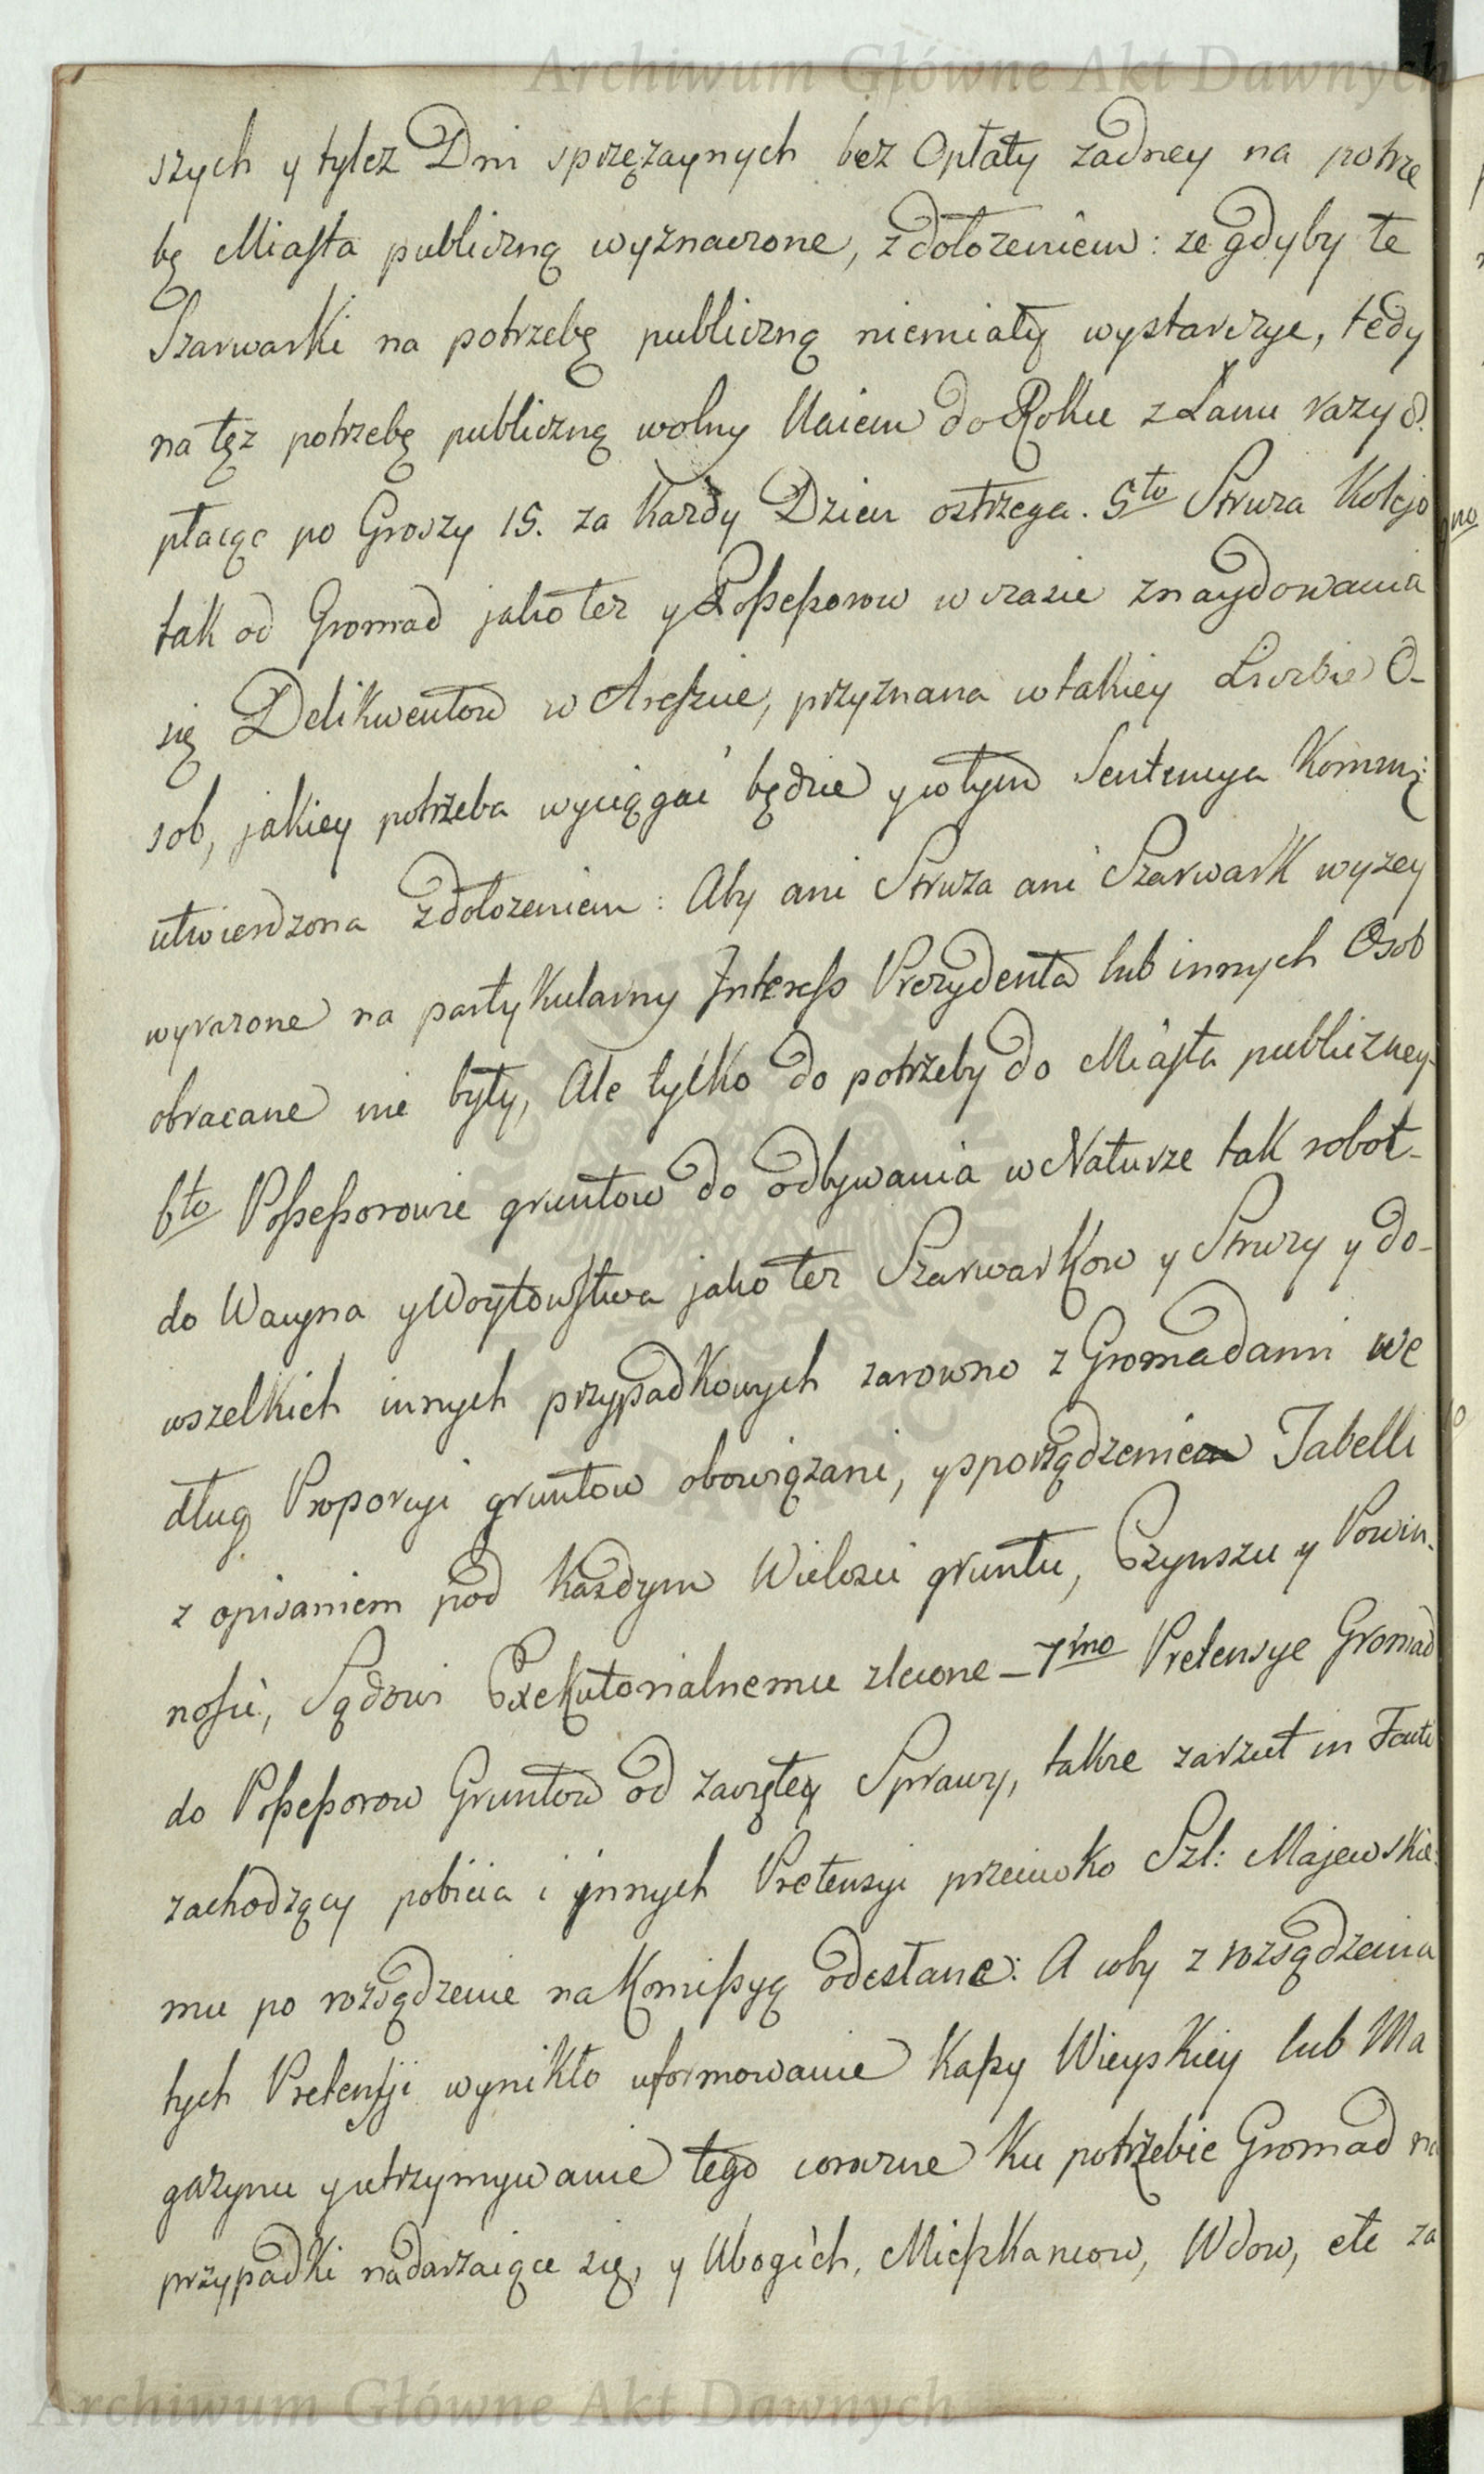 Archiwum Główne Akt Dawnych
szych y tylez Dni sprzęzaynych bez Opłaty zadney na potrze
bę Miasta publiczną wyznaczone, z dołozeniem: ze gdyby te
Szarwarki na potrzebę publiczną niemiały wystarczyc, tedy
na tęz potrzebę publiczną wolny Naiem do Roku z Łanu razy 8.
płacąc po Groszy 15. za Kazdy Dzien ostrzega. 5to Struza Koleją
tak od Gromad jako tez y Possessorow w czasie znaydowania
się Delikwentow w Areszcie, przyznana w takiey Liczbie O-
sob, jakiey potrzeba wyciągać będzie y w tym Sentencya Kommi:
utwierdzona z dołozeniem: Aby ani Struza ani Szarwark wyzey
wyrazone na partykularny Interess Prezydenta lub innych Osob
obracane nie były, Ale tylko do potrzeby do Miasta publiczney.
6to Possessorowie gruntow do odbywania w Naturze tak robot
do Wacyna y Woytowstwa jako tez Szarwarkow y Struzy y do-
wszelkich innych przypadkowych zarowno z Gromadami we
dług Proporcyi gruntow obowiązani, y sporządzenie Tabelli
z opisaniem pod Kazdym Wielosci gruntu, Czynszu y Powin-
nosci, Sądowi Exekutorialnemu zlecone – 7imo Pretensye Gromad
do Possessorow Gruntow od zaczętey Sprawy, takze zarzut in Facti
zachodzący pobicia i innych Pretensyi przeciwko Szl: Majewskie
mu po rozsądzenie na Komissyą odesłane: A coby z rozsądzenia
tych Pretensyi wynikło uformowanie Kassy Wieyskiey lub Ma
gazynu y utrzymywanie tego corocznie Ku potrzebie Gromad na
przypadki nadarzaiące się, y Ubogich, Mieszkancow, Wdow, etc za
Archiwum Główne Akt Dawnych